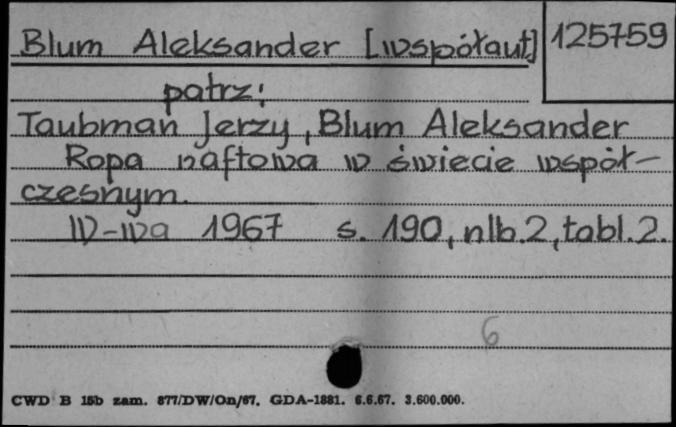 Blum Aleksander [współaut]
125759
patrz:
Taubman Jerzy, Blum Aleksander
Ropa naftowa w świecie współ-
czesnym.
W-wa 1967 s. 190, nlb.2, tabl.2.
6
CWD B 15b zam. 877/DW/On/67. GDA-1881. 6.6.67. 3.600.000.